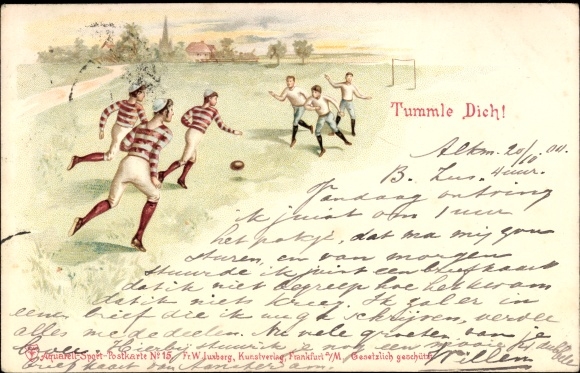 Tummle Dich!
Alkm. 20/10 00.
B. Zus. 4 uur.
Vandaag ontving
ik juist om 1 uur
het pakje, dat ma mij zou
sturen, en van morgen
stuurde ik juist een briefkaart
dat ik niet begreep hoe het kwam
dat ik niets kreeg. Ik zal er in
een brief die ik nog schrijven, verder
alles mededeelen. Nu vele groeten van je
Hierbij stuur ik je nog een mooie
Willem
briefkaart van Amsterdam.
Aquarell-Sport-Postkarte No 15. Fr. W. Juxberg, Kunstverlag, Frankfurt a/M. Gesetzlich geschützt